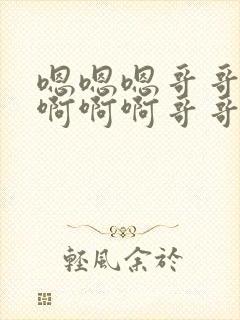 嗯嗯嗯哥哥
啊啊啊哥哥
轻風余於